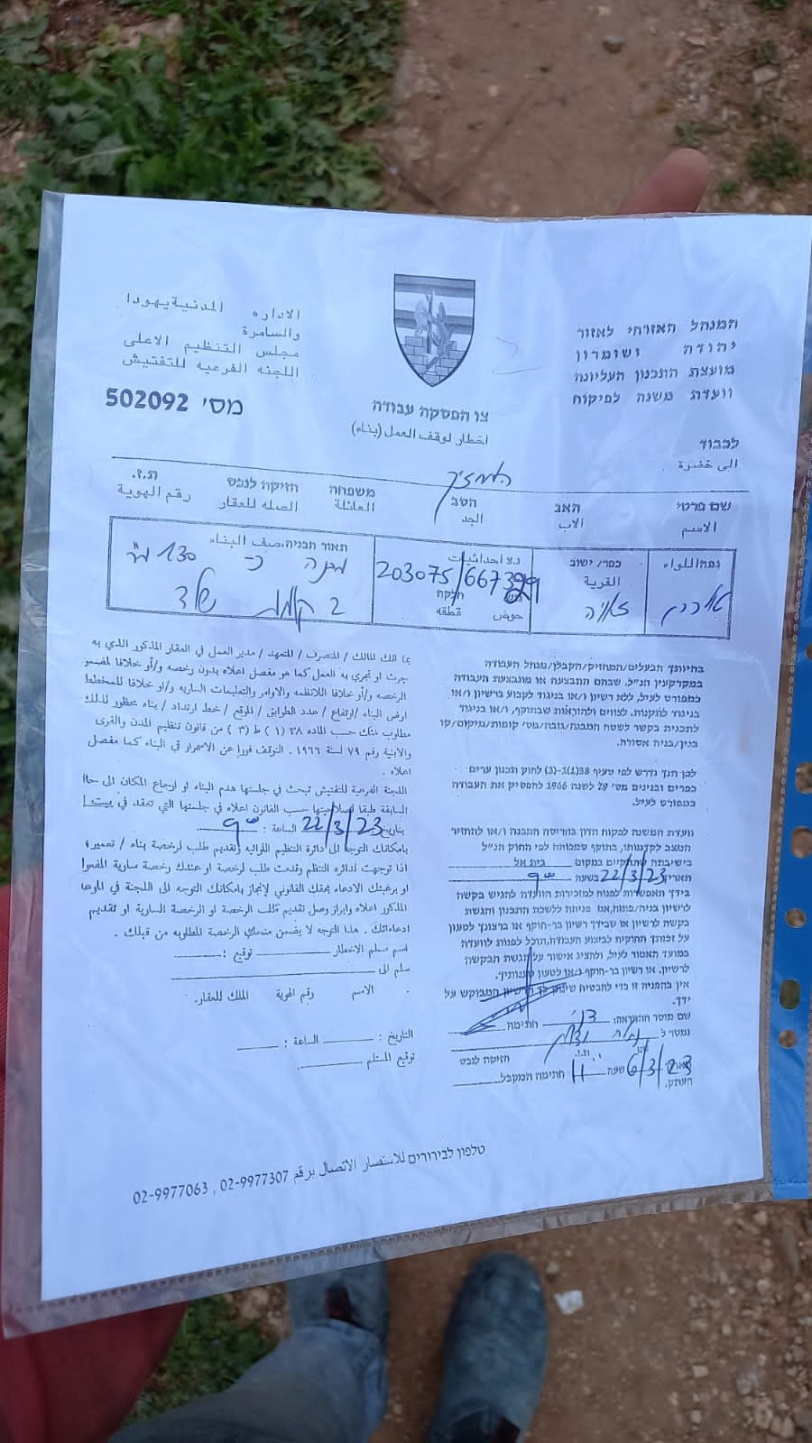 המנהל האזרחי לאזור
יהודה ושומרון
מועצת התכנון העליונה
וועדת משנה לפיקוח
الاداره المدنية يهودا
والسامرة
مجلس التنظيم الاعلى
اللجنه الفرعيه للتفتيش
מס' 502092
צו הפסקה עבודה
اخطار لوقف العمل (بناء)
לכבוד
الى حضرة
המחזיק
שם פרטי האב הסב משפחה חזיקה לנכס ת.ז.
الاسم الاب الجد العائلة الصله للعقار رقم الهوية
נפה/اللواء כפר/ישוב נ.צ احداثيات תאור הבניה/وصف البناء
القرية 203075/667329 מבנה כ- 130 מ"ר
זאויה גוש חלקה 2 קומות שלד
حوض قطعه
בהיותך הבעלים/המחזיק/הקבלן/מנהל העבודה
במקרקעין הנ"ל, שבהם התבצעה או מתבצעת העבודה
כמפורט לעיל, ללא רשיון ו/או בניגוד לקבוע ברשיון ו/או
בניגוד לתקנות, לצווים ולהוראות שבתוקף, ו/או בניגוד
לתכנית בקשר לשטח המבנה/גובה/מס' קומות/מיקום/קו
בנין/בניה אסורה.
לכן הנך נדרש לפי סעיף 38(1)(ג-3) לחוק תכנון ערים
כפרים ובנינים מס' 79 לשנת 1966 להפסיק את העבודה
כמפורט לעיל.
וועדת המשנה לפקוח תדון בהריסת המבנה ו/או להחזיר
המצב לקדמותו, בתוקף סמכותה לפי החוק הנ"ל
בישיבתה שתתקיים במקום בית אל
תאריך 22/3/23 בשעה 9⁰⁰
בידך האפשרות לפנות למזכירות הוועדה להגיש בקשה
לרשיון בניה/פתוח, אם פנית ללשכת התכנון והגשת
בקשה לרשיון או שבידך רשיון בר-תוקף או ברצונך לטעון
על זכותך החוקית לביצוע העבודה, תוכל לפנות לוועדה
במועד האמור לעיל, ולהציג אישור על הגשת הבקשה
לרשיון, או רשיון בר-תוקף ו/או לטעון טענותיך.
אין בהפניה זו כדי להבטיח שינתן לך הרשיון המבוקש על
ידך.
שם מוסר ההתראה: חתימה
נמסר ל
ת.ז. חזיקה לנכס
תאריך 6/3/23 שעה 11 חתימת המקבל
העתק.
بما انك المالك / المتصرف / المتعهد / مدير العمل في العقار المذكور الذي به
جرت او تجري به العمل كما هو مفصل اعلاه بدون رخصه و/أو خلافا لمضمون
الرخصه و/أو خلافا للانظمه والاوامر والتعليمات الساريه و/او خلافا للمخطط
ارض البناء /ارتفاع / عدد الطوابق / الموقع / خط ارتداد / بناء محظور لذلك
مطلوب منك حسب الماده ٣٨ ( ١ ) ط ( ٣ ) من قانون تنظيم المدن والقرى
والابنية رقم ٧٩ لسنة ١٩٦٦ . التوقف فورا عن الاستمرار في البناء كما مفصل
اعلاه .
اللجنة الفرعية للتفتيش تبحث في جلستها هدم البناء او ارجاع المكان الى حالته
السابقة طبقا لصلاحيتها حسب القانون اعلاه في جلستها التي تنعقد في
بتاريخ 22/3/23 الساعة : 9⁰⁰
بامكانك التوجه الى دائرة التنظيم اللوائيه وتقديم طلب لرخصة بناء / تعمير،
اذا توجهت لدائرة التنظم وقدمت طلب لرخصة او عندك رخصة سارية المفعول
او برغبتك الادعاء بحقك القانوني لإنجاز بامكانك التوجه الى اللجنة في الموعد
المذكور اعلاه وابراز وصل تقديم طلب الرخصة او الرخصة السارية او تقديم
ادعاءاتك . هذا التوجه لا يضمن منحك الرخصة المطلوبه من قبلك .
اسم مسلم الاخطار توقيع :
سلم الى
الاسم رقم الهوية الملك للعقار.
التاريخ : الساعة :
توقيع المستلم
טלפון לבירורים للاستفسار الاتصال برقم 02-9977307 , 02-9977063